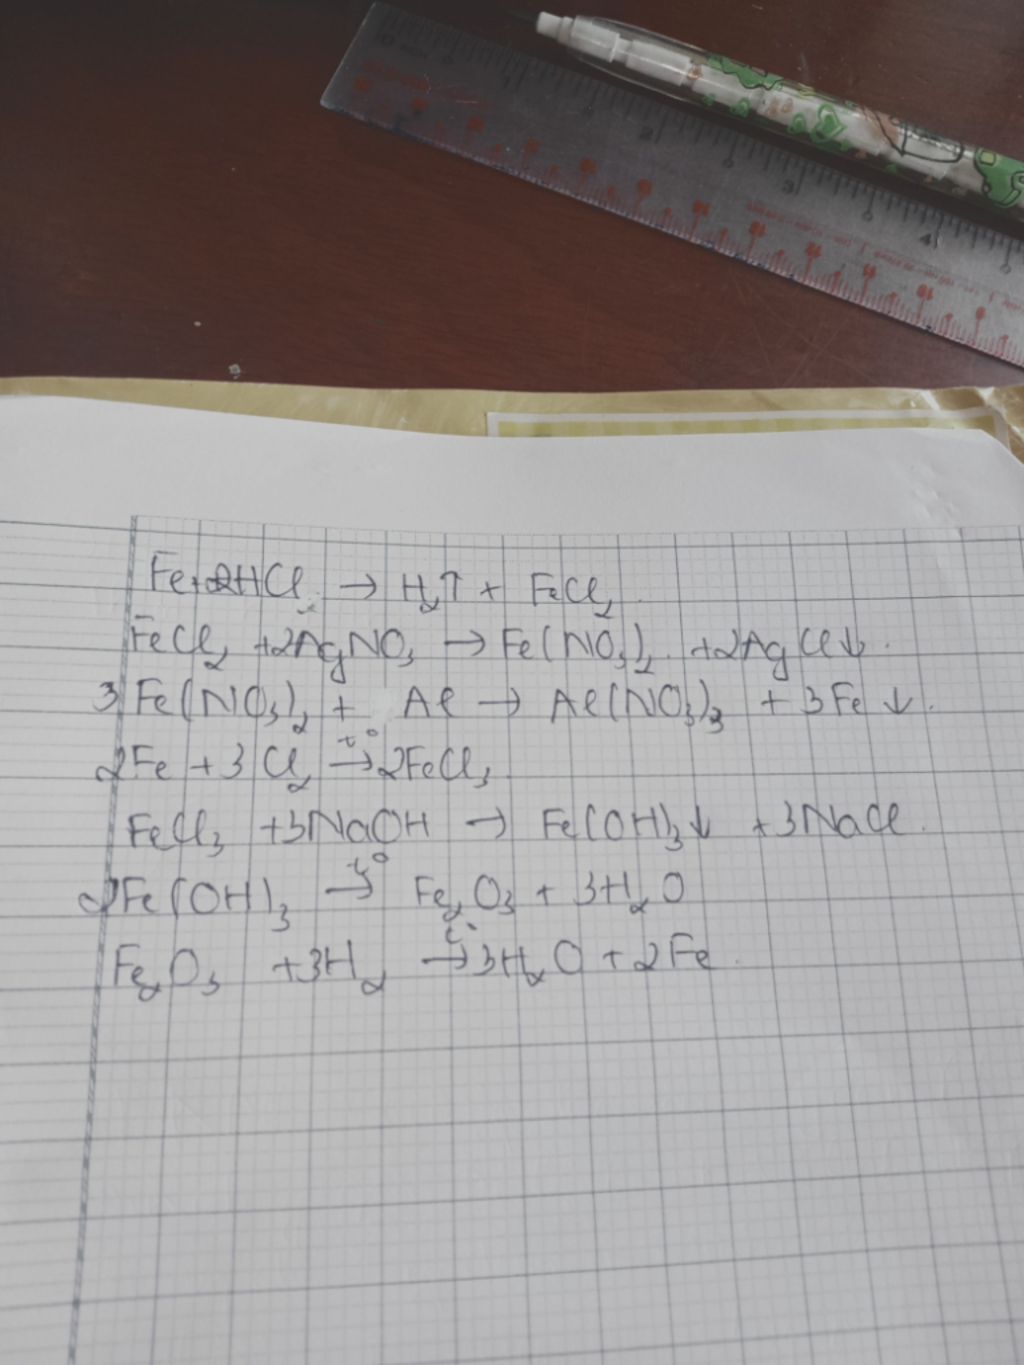 Fe+2HCl → H₂↑ + FeCl₂
FeCl₂ +2AgNO₃ → Fe(NO₃)₂ +2AgCl↓.
3Fe(NO₃)₂ + Al → Al(NO₃)₃ + 3Fe↓.
2Fe +3Cl₂ t°→ 2FeCl₃
FeCl₃ +3NaOH → Fe(OH)₃↓ +3NaCl.
2Fe(OH)₃ t°→ Fe₂O₃ + 3H₂O
Fe₂O₃ +3H₂ t°→ 3H₂O +2Fe.